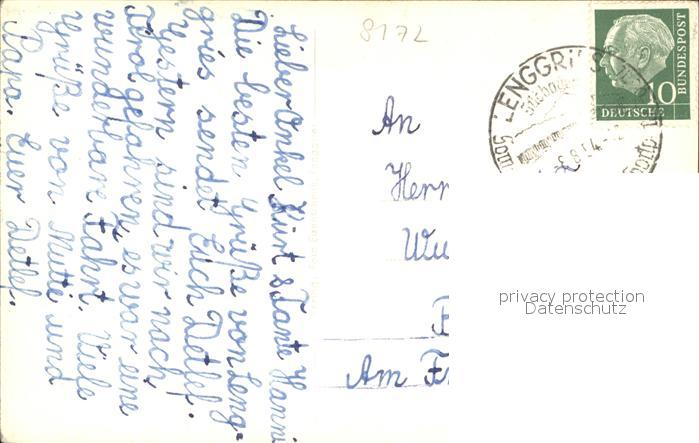 Lieber Onkel Kurt & Tante Hanni
Die besten Grüße von Leng-
gries sendet Euch Detlef.
Gestern sind wir nach
Tirol gefahren, es war eine
wunderbare Fahrt. Viele
Grüße von Mutti und
Papa. Euer Detlef.
8172
An
Herr
Am
LENGGRIES
10
DEUTSCHE
BUNDESPOST
privacy protection
Datenschutz